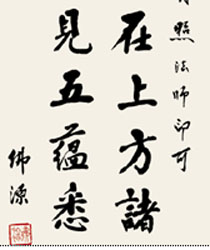 照法师印可
在上方諸
見五蘊悉
佛源